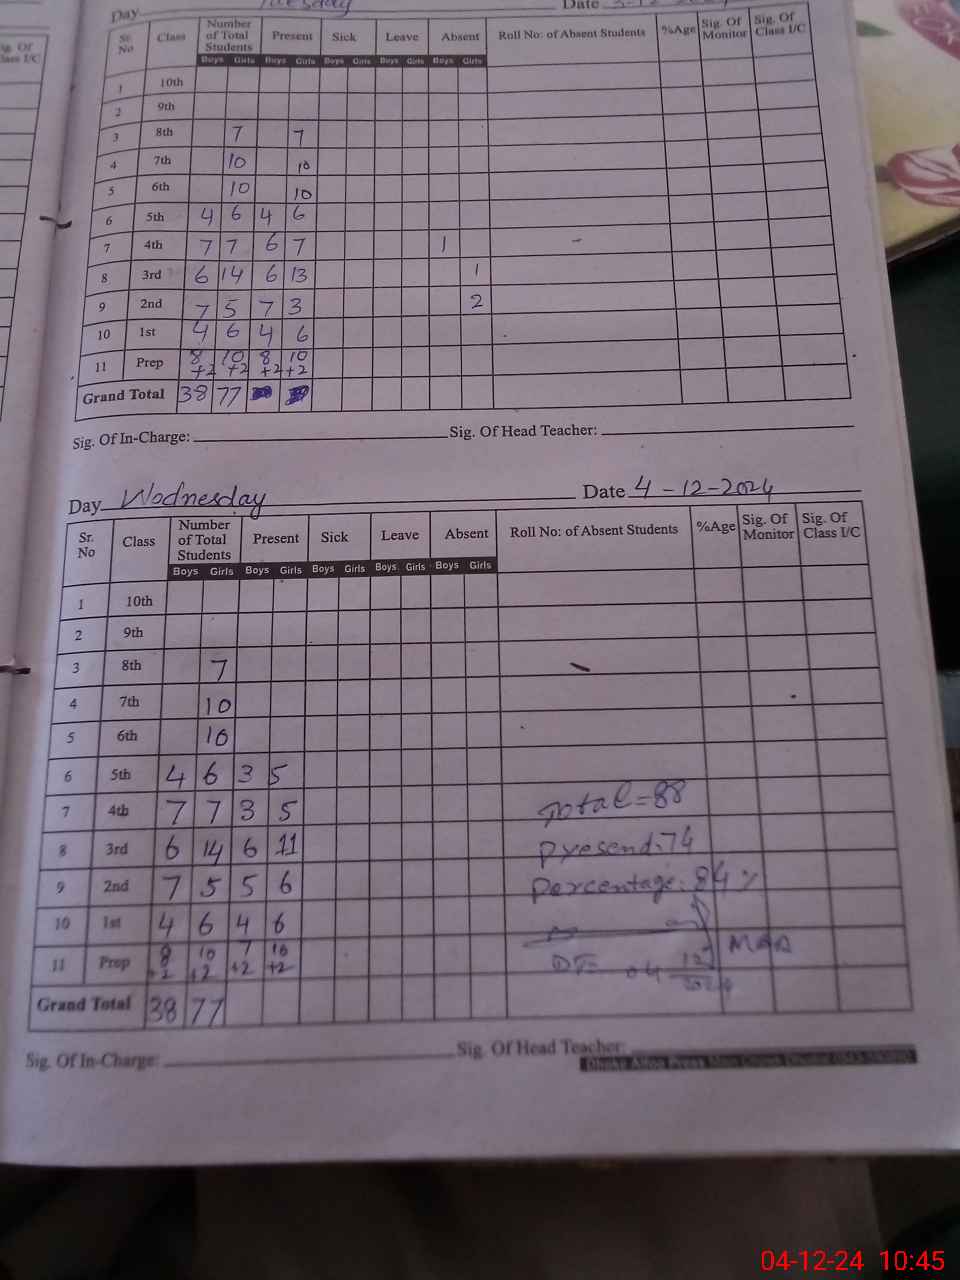 Day Tuesday Date 3-12-2024
Sr. No Class Number of Total Students Present Sick Leave Absent Roll No: of Absent Students %Age Sig. Of Monitor Sig. Of Class I/C
Boys Girls Boys Girls Boys Girls Boys Girls Boys Girls
1 10th
2 9th
3 8th 7 7
4 7th 10 10
5 6th 10 10
6 5th 4 6 4 6
7 4th 7 7 6 7 1 -
8 3rd 6 14 6 13 1
9 2nd 7 5 7 3 2
10 1st 4 6 4 6
11 Prep 8 +2 10 +2 8 +2 10 +2
Grand Total 38 77
Sig. Of In-Charge: Sig. Of Head Teacher:
Day Wodnesday Date 4-12-2024
Sr. No Class Number of Total Students Present Sick Leave Absent Roll No: of Absent Students %Age Sig. Of Monitor Sig. Of Class I/C
Boys Girls Boys Girls Boys Girls Boys Girls Boys Girls
1 10th
2 9th
3 8th 7
4 7th 10
5 6th 10
6 5th 4 6 3 5
7 4th 7 7 3 5 Total=88
8 3rd 6 14 6 11 Presend:74
9 2nd 7 5 5 6 Percentage: 84 %
10 1st 4 6 4 6
11 Prep 8 +2 10 +2 7 +2 10 +2
Grand Total 38 77
Sig. Of In-Charge: Sig. Of Head Teacher:
04-12-24 10:45